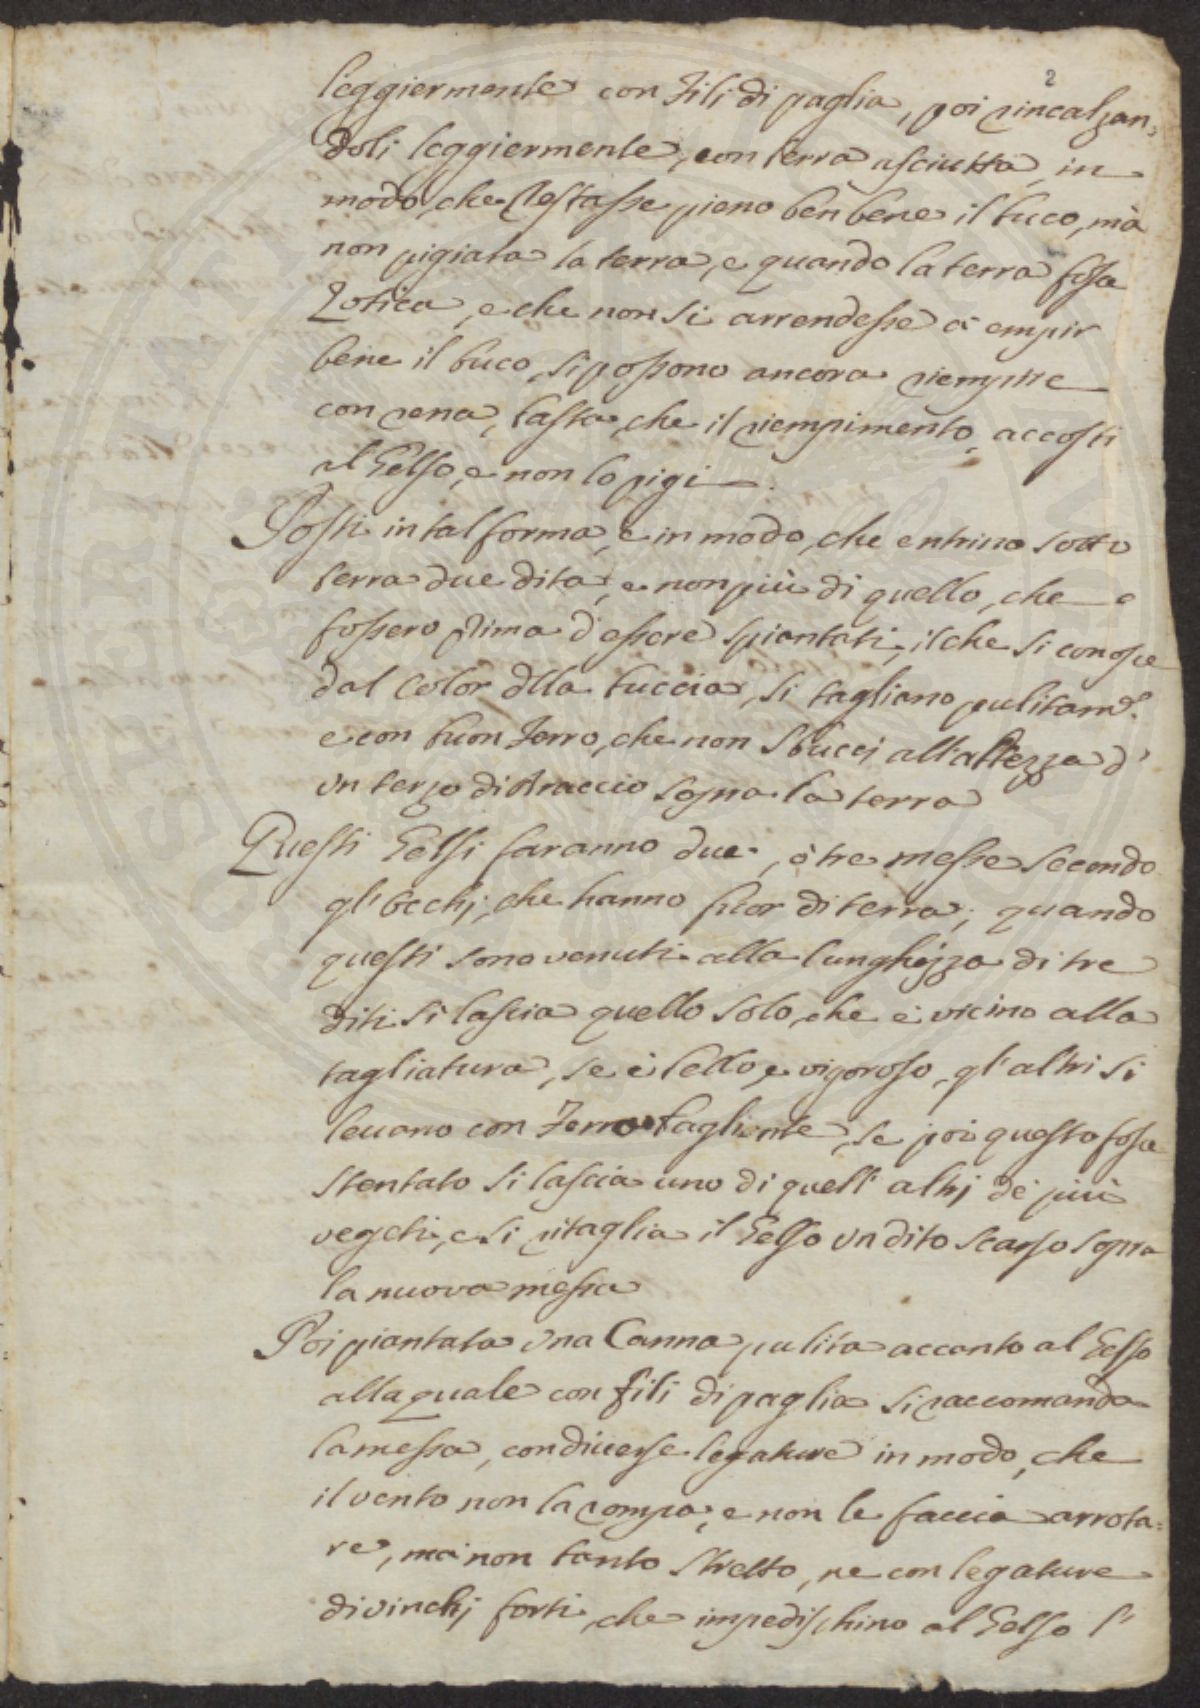 2
leggiermente con Fili di paglia, poi rincalzan=
doli leggiermente, con terra asciutta, in
modo, che restasse pieno ben bene il buco, mà
non pigiata la terra, e quando la terra fosse
Zotica, e che non si arrendesse à empir
bene il buco, si possono ancora riempire
con rena, basta, che il riempimento, accosti
al Gelso, e non lo pigi
Posti in tal forma, e in modo, che entrino sotto
terra due dita, e non più di quello, che
fossero prima d'essere spiantati, il che si conosce
dal color dlla buccia, si tagliano pulitam.e
e con buon Ferro, che non sbucci all'altezza d'
un terzo di Braccio sopra la terra
Questi Gelsi faranno due, ò tre messe secondo
gl'occhj, che hanno fuor di terra; quando
questi sono venuti alla lunghezza di tre
diti si lascia quello solo, che è vicino alla
tagliatura, se è bello, e vigoroso, gl'altri si
levano con Ferro tagliente, se poi questo fosse
stentato si lascia uno di quell'altrj de più
vegeti, e si ritaglia il Gelso un dito scarso sopra
la nuova messa
Poi piantata una Canna pulita accanto al Gelso
alla quale con fili di paglia si raccomanda
la messa, con diverse legature in modo, che
il vento non la rompa, e non le faccia arrota=
re, mà non tanto stretto, ne con legature
di vinchj forti, che impedischino al Gelso l'